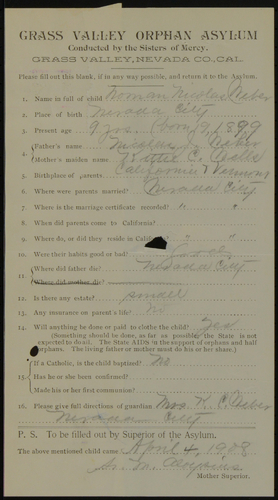 GRASS VALLEY ORPHAN ASYLUM
Conducted by the Sisters of Mercy.
GRASS VALLEY, NEVADA CO., CAL.
Please fill out this blank, if in any way possible, and return it to the Asylum.
1. Name in full of child Norman Nicolas
2. Place of birth Nevada City
3. Present age 9 yrs. (born 1899
4. Father's name Nicolas
Mother's maiden name C.
5. Birthplace of parents California &
6. Where were parents married? Nevada City
7. Where is the marriage certificate recorded? " "
8. When did parents come to California?
9. Where do, or did they reside in Calif " "
10. Were their habits good or bad? Good
11. Where did father die? Nevada City
Where did mother die?
12. Is there any estate? small
13. Any insurance on parent's life? No
14. Will anything be done or paid to clothe the child? Yes
(Something should be done, as far as possible; the State is not
expected to do all. The State AIDS in the support of orphans and half
orphans. The living father or mother must do his or her share.)
15. If a Catholic, is the child baptised? No
Has he or she been confirmed?
Made his or her first communion?
16. Please give full directions of guardian Mrs. K. C.
Nevada City
P. S. To be filled out by Superior of the Asylum.
The above mentioned child came April 4, 1908
Sr. M. Aloysius
Mother Superior.